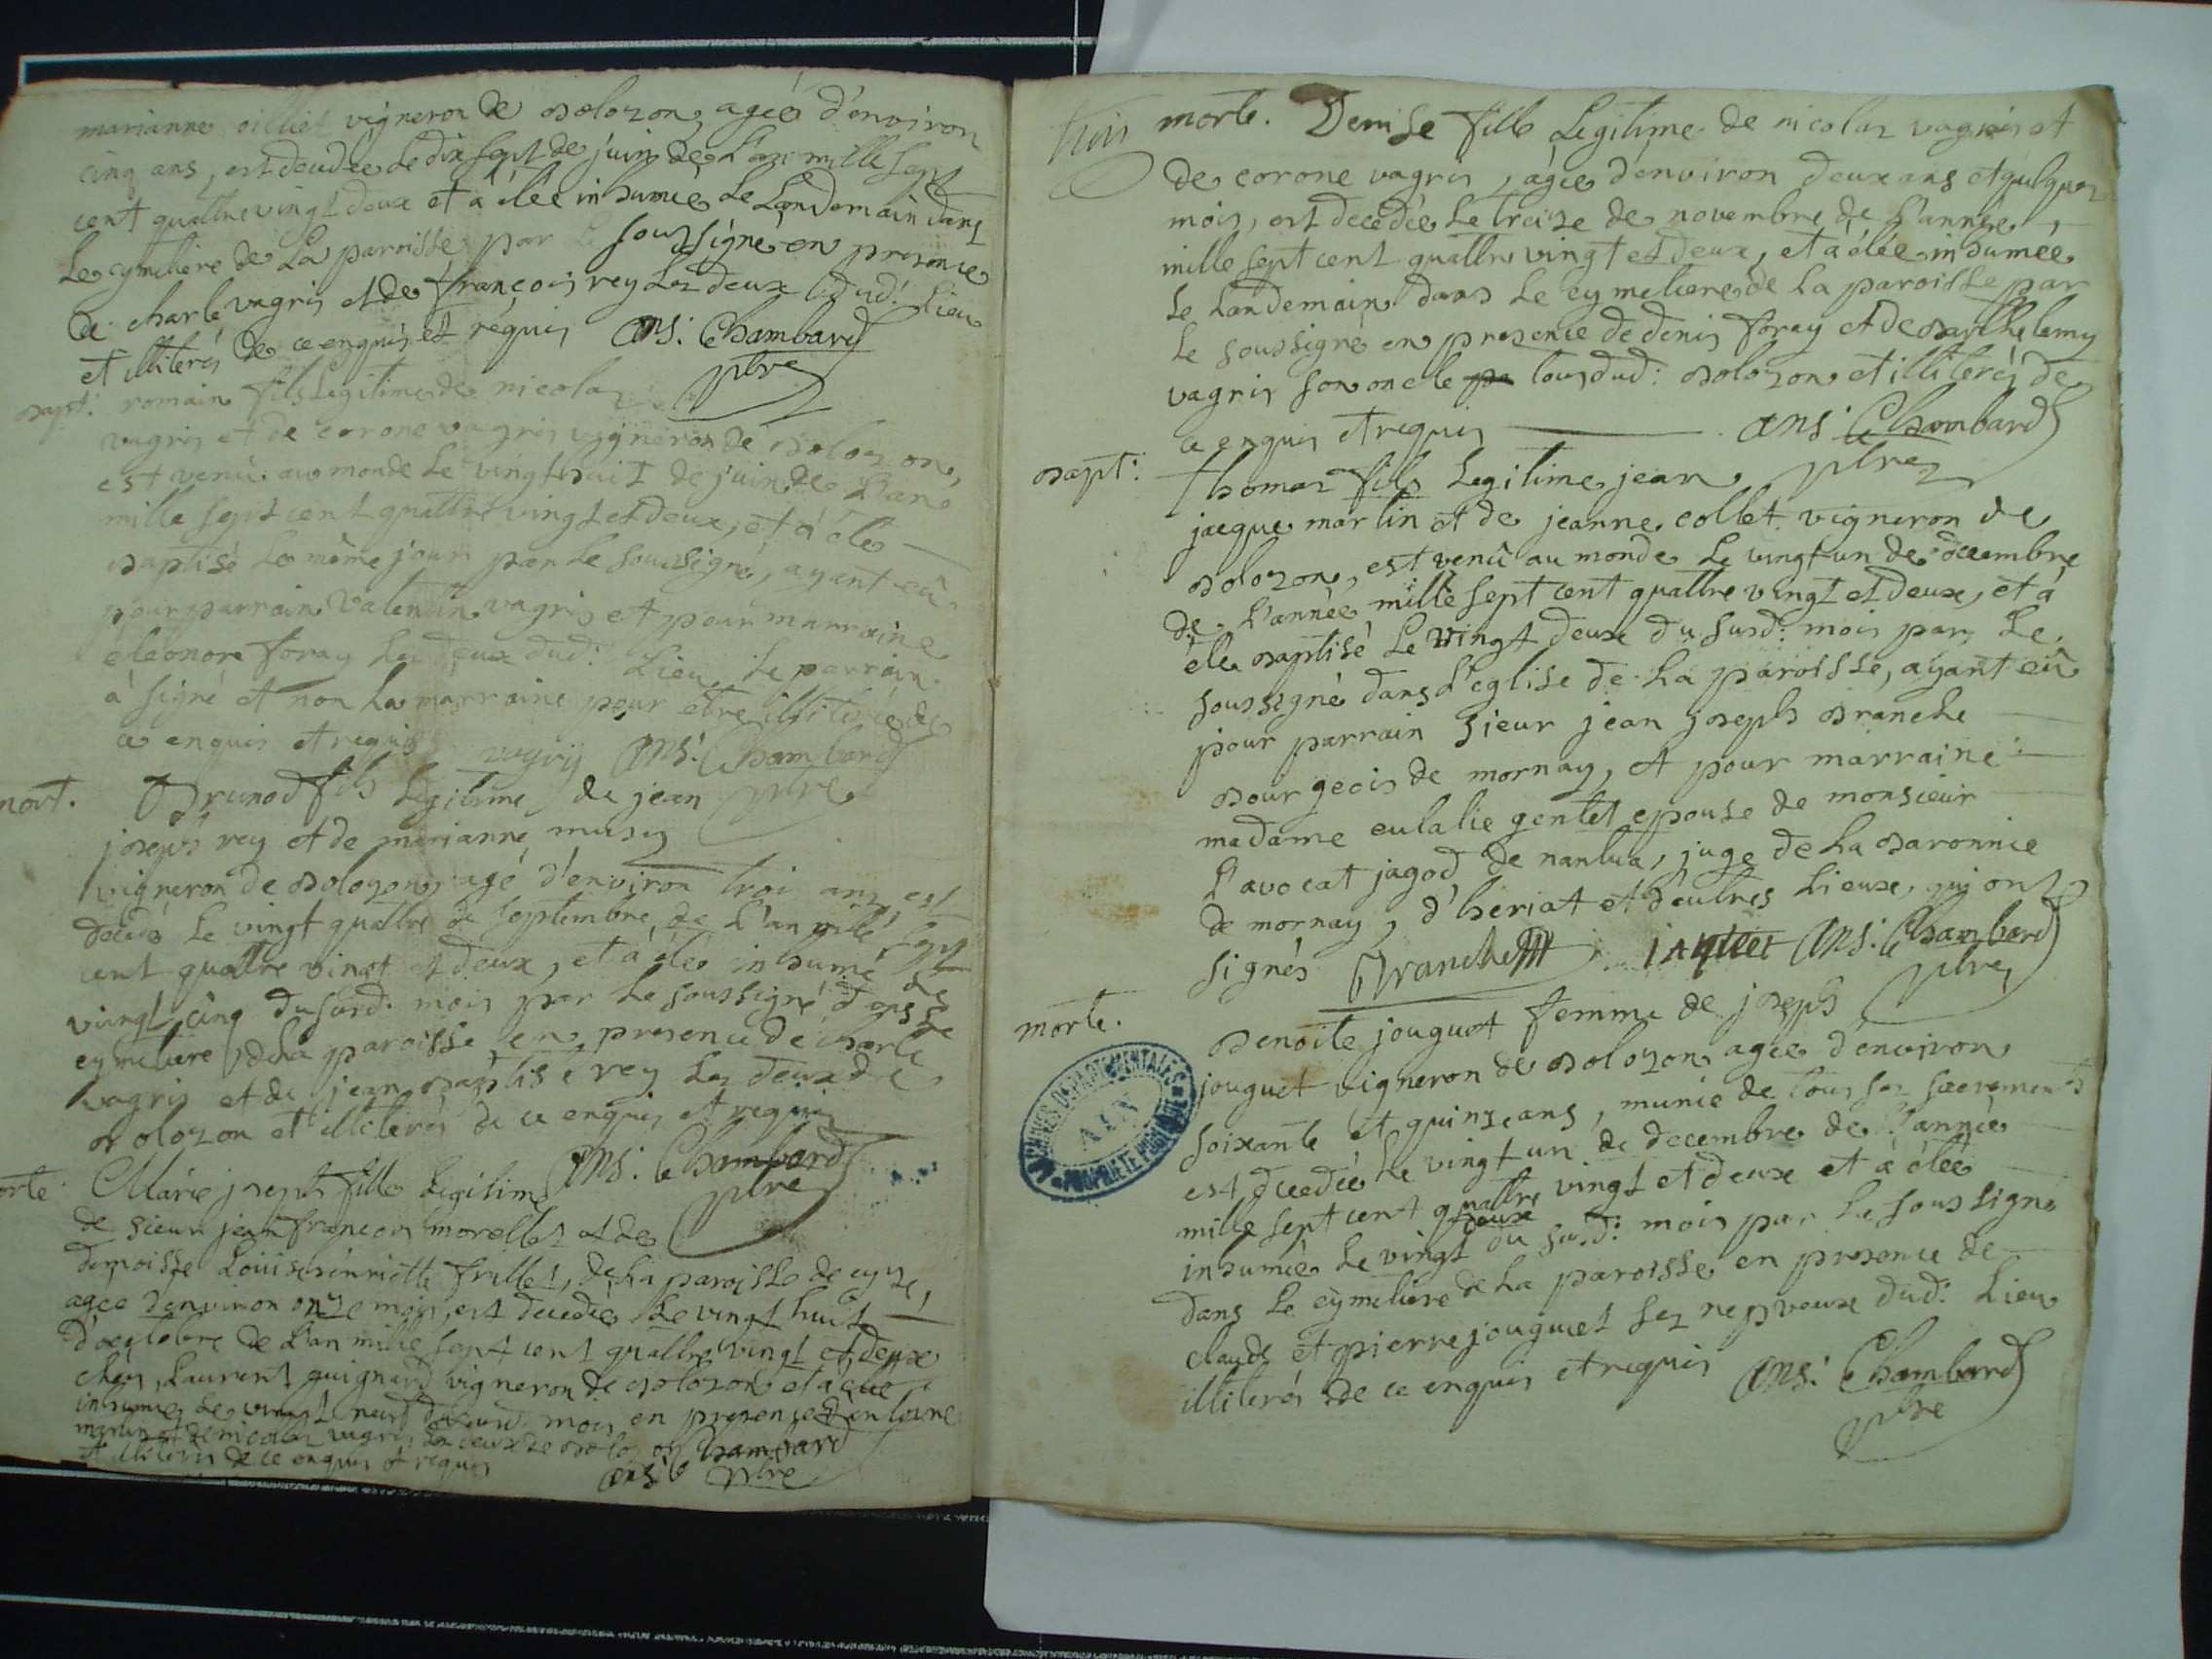 marianne oilliet vigneron de bolozon, ageé d'environ
cinq ans, est decedeé Le dix sept de juin de L'an mille sept
cent quattrevingt deux et à étéé inhumeé Le Landemain dans
Le cymetiere de La paroisse par soussigné en presence
de charle vagris et de françois rey Les deux dud: Lieu
et illiterés de ce enquis et requis ans: Chambard
ptre
bapt: romain fils Legitime de nicolas
vagris et de corone vagris vigneron de bolozon,
est venû au monde Le vingt huit de juin de L'an
mille sept cent quattre vingt et deux, et à été
baptisé Le même jour par Le soussigné, ayant eû
pour parrain valentin vagris et pour marraine
éléonore foray Les deux dud: Lieu Le parrain
à signé et non La marraine pour etre illiterée de
ce enquis et requis vagris ans: Chambard
ptre
mort. Brunod fils Legitime de jean
joseph rey et de marianne musy
vigneron de bolozon agé d'environ troi ans, est
decedé Le vingt quattre de septembre, de L'an mille sept
cent quattre vingt et deux, et à été inhumé Le
vingt cinq du susd: mois par Le soussigné dans Le
cymetiere de La paroisse en presence de charle
vagris et de jean baptiste rey Les deux de
bolozon et illiterés de ce enquis et requis
ans: Chambard
ptre
morte Marie joseph fille Legitime
de sieur jean françois morellet et de
demoisse Loüise henriette frillet, de La paroisse de cyze,
agée d'environ onze mois, est decedeé Le vingt huit
d'octobre de L'an mille sept cent quattre vingt et deux
chés Laurent guignard vigneron de bolozon et à été
inhumeé Le vingt neuf du susd mois en presence d'antoine
martin et de nicolas vagris Les deux de bolozon
et illiterés de ce enquis et requis ans: Chambard
ptre
trois
morte. Denise fille Legitime de nicolas vagris et
de corone vagris, agée d'environ deux ans et quelques
mois, est decedeé Le treize de novembre de L'année
mille sept cent quattre vingt et deux, et à étéé inhumeé
Le Landemain dans Le cymetiere de La paroisse par
Le soussigné en presence de denis foray et de barthelemy
vagris son oncle tous dud: bolozon et illiterés de
ce enquis et requis ans: Chambard
ptre
bapt: thomas fils Legitime jean
jacque martin et de jeanne collet vigneron de
bolozon, est venû au monde Le vingt un de decembre
de L'année mille sept cent quattre vingt et deux, et à
été baptisé Le vingt deux du susd: mois par Le
soussigné dans L'eglise de La paroisse, ayant eû
pour parrain sieur jean joseph branche
bourgeois de mornay, et pour marraine
madame eulalie gentet epouse de monsieur
L'avocat jagod de nantua, juge de La baronnie
de mornay, d'heriat et d'autres Lieux, qui ont
signés Branche ans: Chambard
ptre
morte. benoite jouguet femme de joseph
jouguet vigneron de bolozon agée d'environ
soixante et quinze ans, munie de tous ses sacrements
est decedeé Le vingt un de decembre de L'année
mille sept cent quattre vingt et deux et à étéé
inhumeé Le vingt deux du susd: mois par Le soussigné
dans Le cymetiere de La paroisse en presence de
claude et pierre jouguet ses nepveux dud: Lieu
illiterés de ce enquis et requis ans: Chambard
ptre
ARCHIVES DEPARTEMENTALES
AIN
PROPRIETE PUBLIQUE